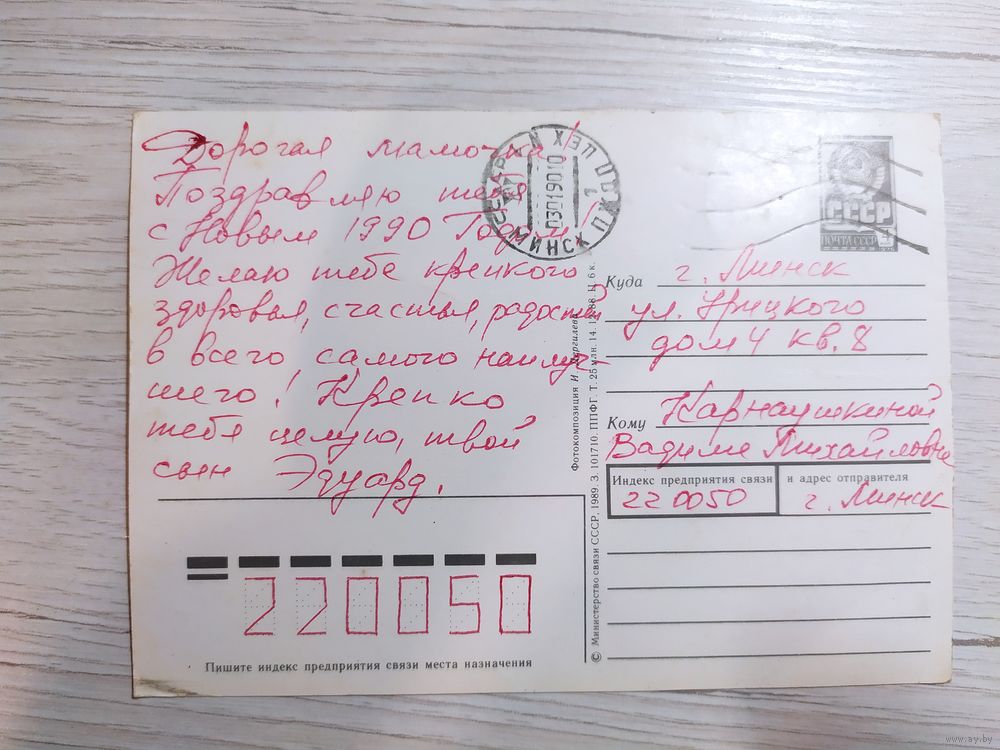 Дорогая мамочка!
Поздравляю тебя
с Новым 1990 Годом!
Желаю тебе крепкого
здоровья, счастья, радостей
в всего самого наилуч-
шего! Крепко
тебя целую, твой
сын Эдуард.
МИНСК ПЖДП
ЦЕХ N 1
03019010
СССР
ПОЧТА СССР
Куда г. Минск
ул. Урицкого
дом 4 кв. 8
Кому Карнаушкиной
Вадиме Михайловне
Индекс предприятия связи и адрес отправителя
220050 г. Минск
© Министерство связи СССР. 1989. З. 101710. ППФГ. Т. 25 млн. 14.12.88. Ц. 6 к.
Фотокомпозиция И.
220050
Пишите индекс предприятия связи места назначения
www.ay.by